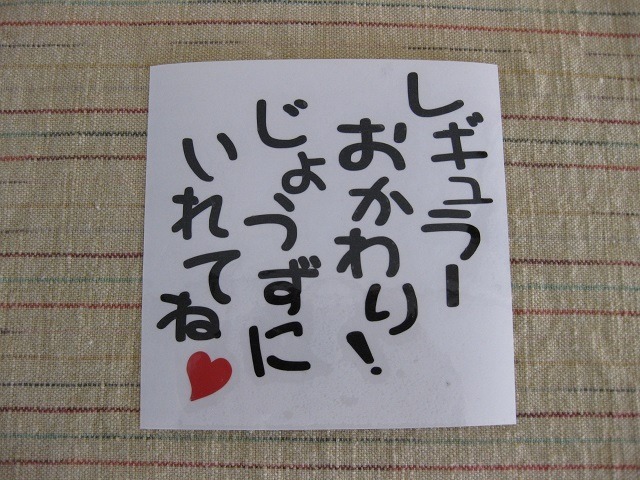 レギュラー
おかわり!
じょうずに
いれてね